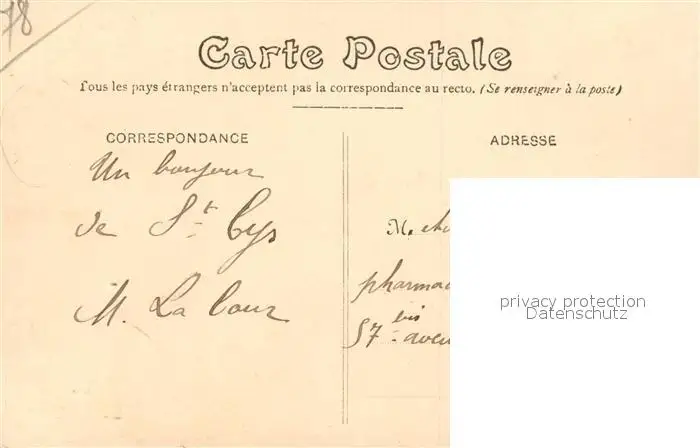 78
Carte Postale
Tous les pays étrangers n'acceptent pas la correspondance au recto. (Se renseigner à la poste)
CORRESPONDANCE
Un bonjour
de St Cyr
M. La Cour
ADRESSE
M.
pharmac
57 bis aven
privacy protection
Datenschutz